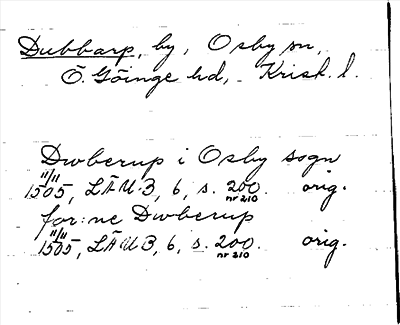 Dubbarp, by, Osby sn,
Ö. Göinge hd, Krist. l.
Dwberup i Osby sogn
11/11 1505, LÄU 3, 6, s. 200. orig.
nr 210
for:ne Dwberup
11/11 1505, LÄU 3, 6, s. 200. orig.
nr 210